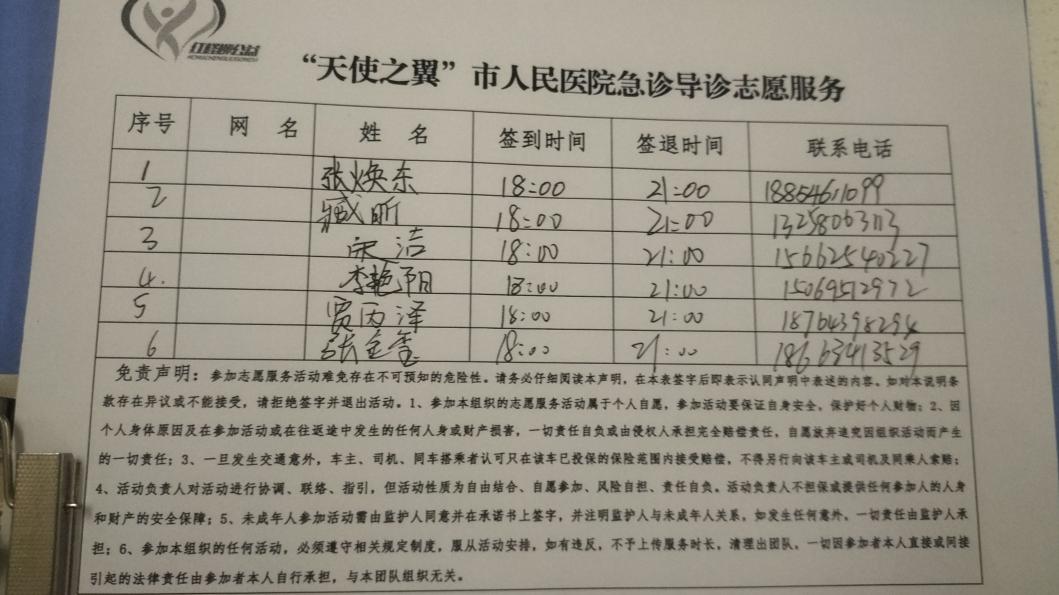 “天使之翼”市人民医院急诊导诊志愿服务
序号 网 名 姓 名 签到时间 签退时间 联系电话
1 张焕东 18:00 21:00 18854611099
2 臧昕 18:00 21:00 13258063113
3 宋洁 18:00 21:00 15662540227
4. 李艳阳 18:00 21:00 15069512972
5 贾丙泽 18:00 21:00 18764398294
6 张 18:00 21:00 18663413529
免责声明:参加志愿服务活动难免存在不可预知的危险性。请务必仔细阅读本声明,在本表签字后即表示认同声明中表述的内容。如对本说明条
款存在异议或不能接受,请拒绝签字并退出活动。1、参加本组织的志愿服务活动属于个人自愿,参加活动要保证自身安全,保护好个人财物;2、因
个人身体原因及在参加活动或在往返途中发生的任何人身或财产损害,一切责任自负或由侵权人承担完全赔偿责任,自愿放弃追究因组织活动而产生
的一切责任;3、一旦发生交通意外,车主、司机、同车搭乘者认可只在该车已投保的保险范围内接受赔偿,不得另行向该车主或司机及同乘人索赔;
4、活动负责人对活动进行协调、联络、指引,但活动性质为自由结合、自愿参加、风险自担、责任自负。活动负责人不担保或提供任何参加人的人身
和财产的安全保障;5、未成年人参加活动需由监护人同意并在承诺书上签字,并注明监护人与未成年人关系,如发生任何意外,一切责任由监护人承
担;6、参加本组织的任何活动,必须遵守相关规定制度,服从活动安排,如有违反,不予上传服务时长,清理出团队,一切因参加者本人直接或间接
引起的法律责任由参加者本人自行承担,与本团队组织无关。